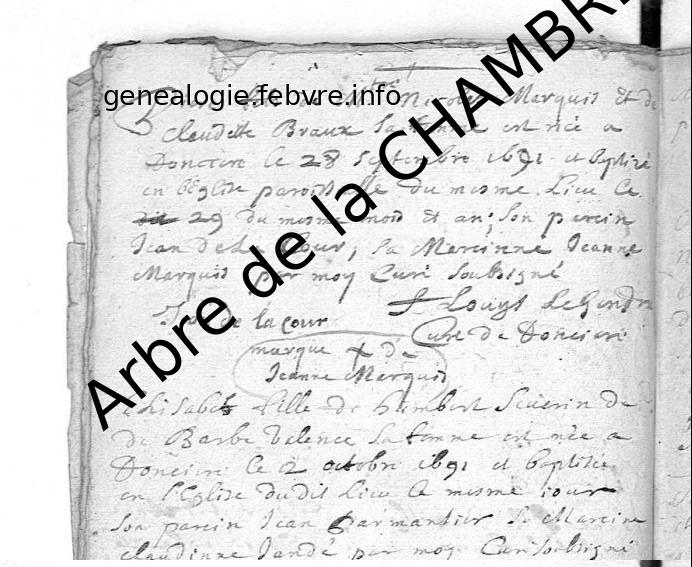 genealogie.febvre.info
Arbre de la CHAMBRE
Nicolas Marquis Et de
Claudette Braux Sa femme est née a
Donciere le 28 septembre 1691 et baptisé
en l'Eglise paroissialle du mesme Lieu le
29 du mesme mois Et an. Son parein
Jean De La Cour, Sa Mareinne Jeanne
Marquis par moy Curé soubsigné
Jean de la cour
f Louys LeGendre
Curé de Doncieres
marque + de
Jeanne Marquis
Elisabet fille de humbert Seuerin de
de Barbe Valence Sa femme est née a
Doncieres le 2 octobre 1691 et baptisée
en l'Eglise dudit Lieu le mesme iour
Son parein Jean Parmantier Sa Mareine
Claudinne par moy Curé soubsigné